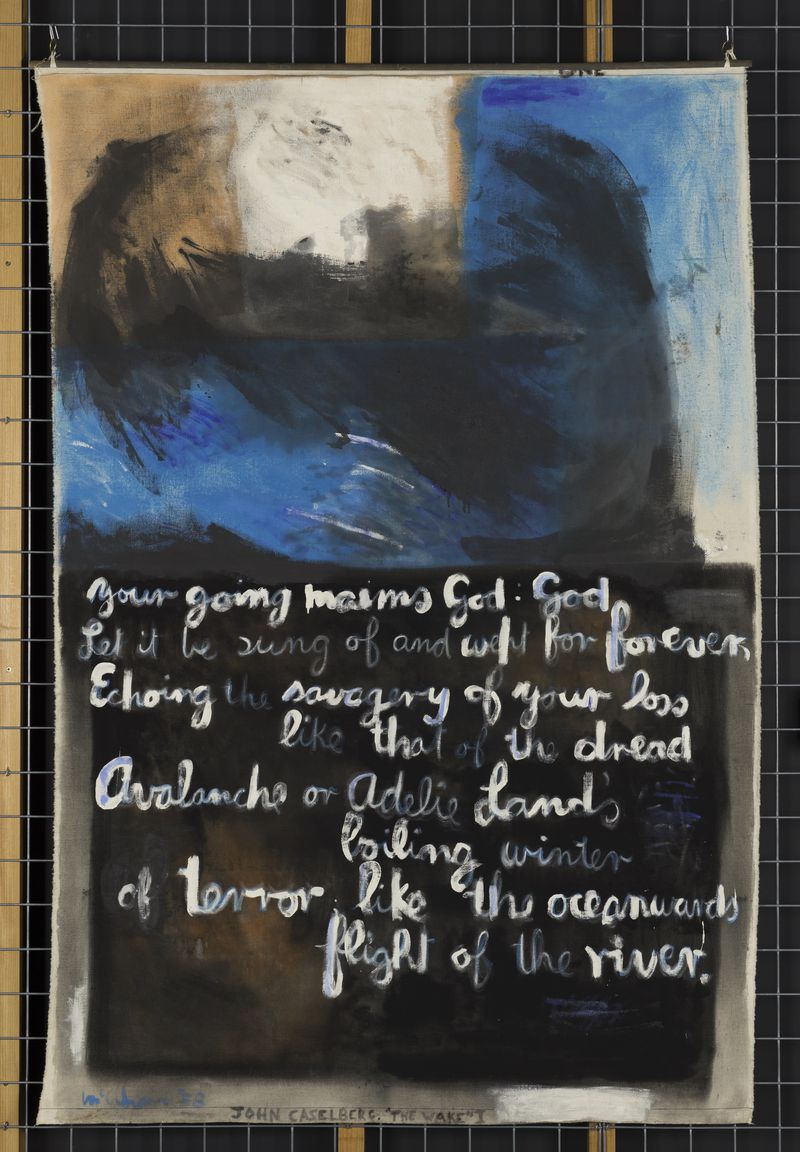 ONE
your going maims God: God
Let it be sung of and wept for forever,
Echoing the savagery of your loss
like that of the dread
Avalanche or Adelie Land's
boiling winter
of terror, like the oceanwards
flight of the river.
McCahon '58
JOHN CASELBERG. "THE WAKE" I